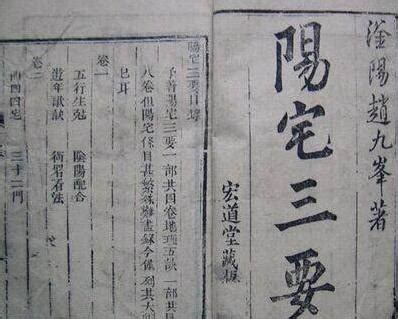 滏陽趙九峯著
陽宅三要
宏道堂藏板
陽宅三要目錄
予著陽宅三要一部共四卷地理五訣一部共
八卷但陽宅條目甚繁殊難盡錄今僅列其大
耳
卷一
五行生剋 陰陽配合
遊年歌訣 衙署看法
卷二
西四宅 三十二門